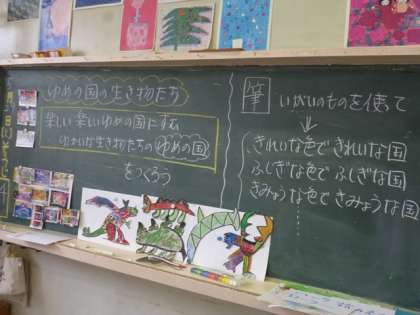 ゆめの国の生き物たち
楽しい楽しいゆめの国にすむ
ゆかいな生き物たちのゆめの国
をつくろう
筆 いがいのものを使て
↓
きれいな色できれいな国
ふしぎな色でふしぎな国
きみょうな色できみょうな国
……